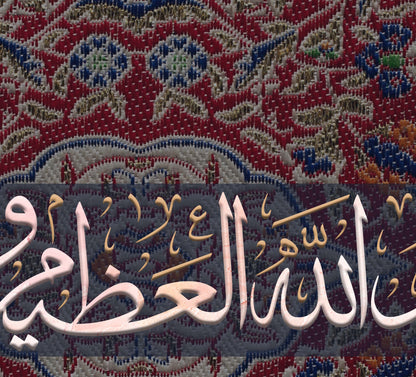 الله العظيم و